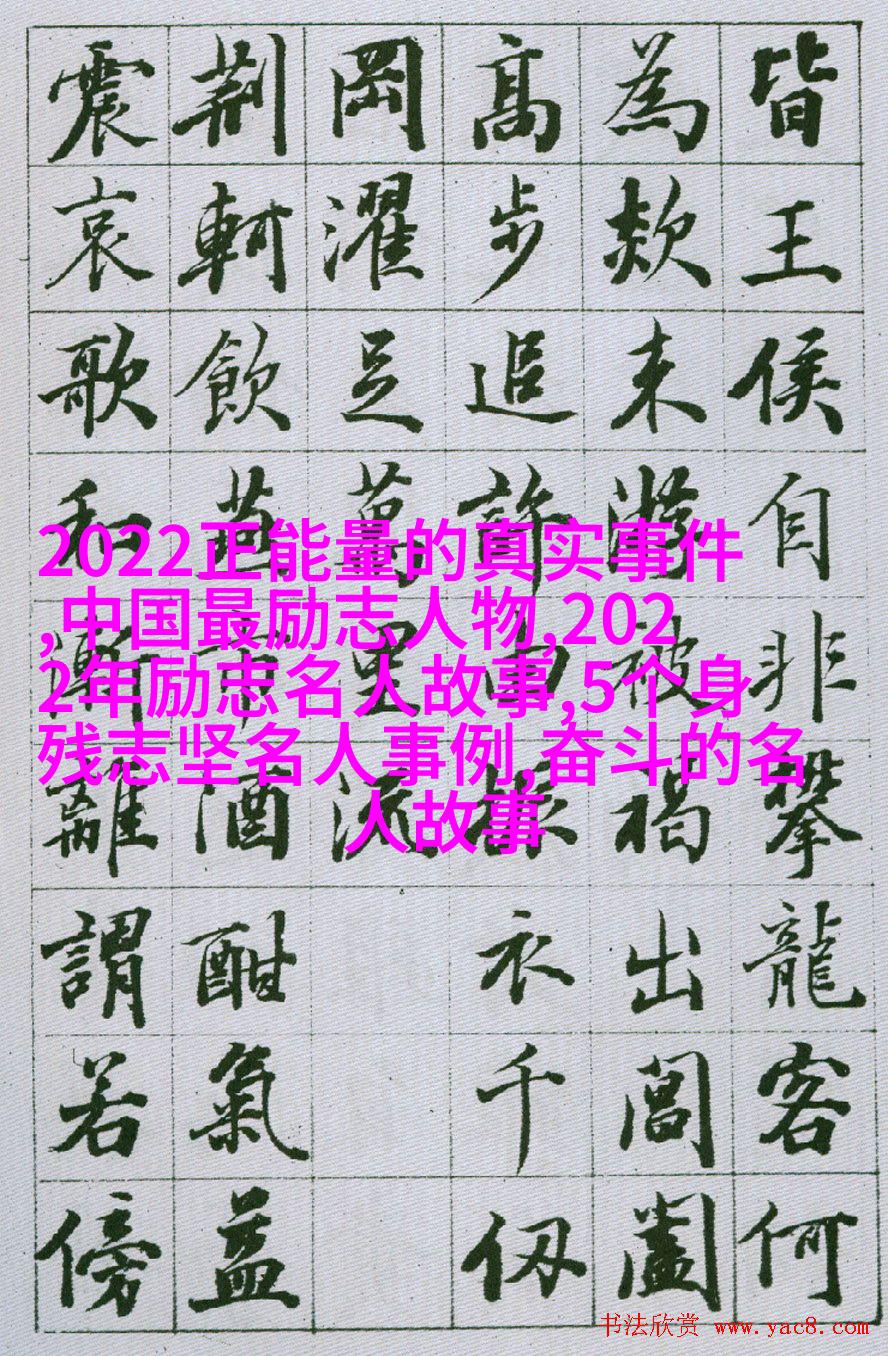 皆王侯自非攀龍客何
為欻来游被褐出閶闔
高步追許由振衣千仞
岡濯足萬里流
荆軻飲燕市酒酣氣益
震哀歌和漸離謂若傍
2022正能量的真实事件
,中国最励志人物,202
2年励志名人故事,5个身
残志坚名人事例,奋斗的名
人故事
书法欣赏 www.yac8.com